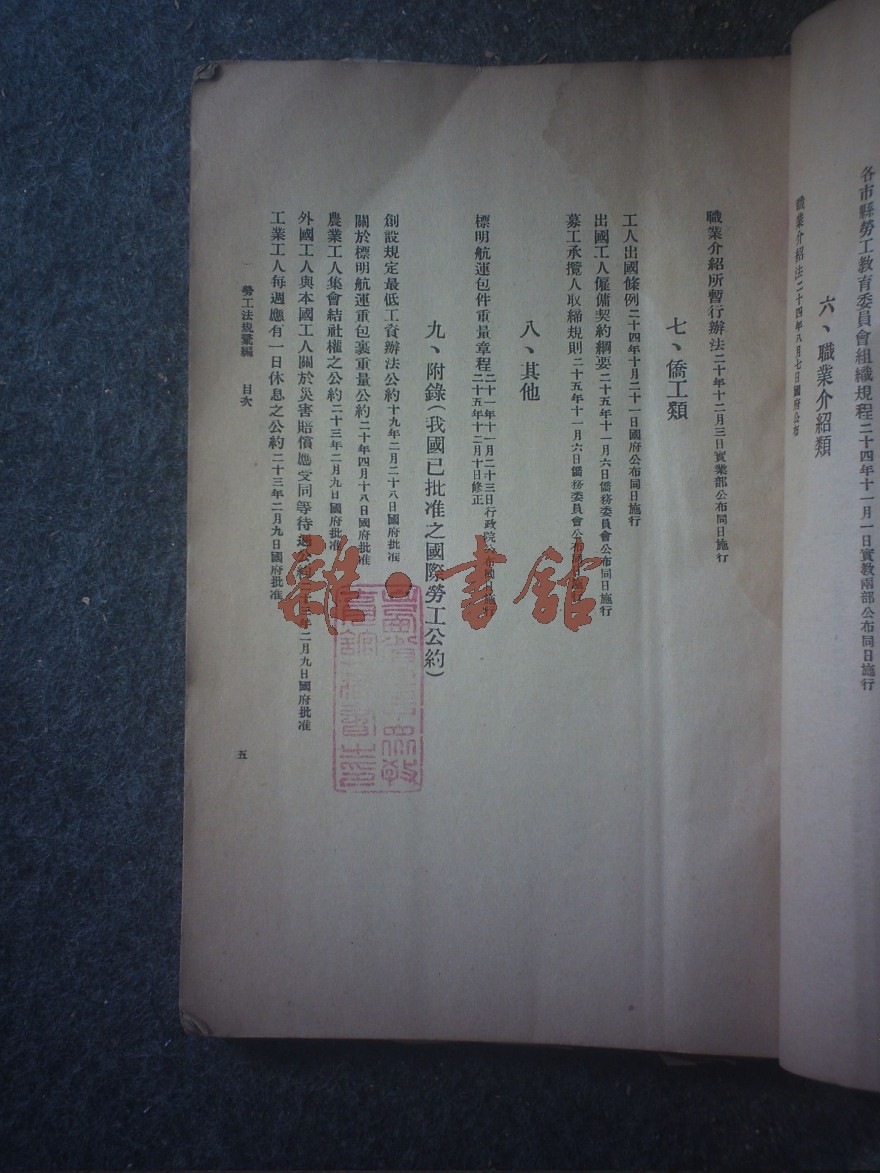 各市縣勞工教育委員會組織規程二十四年十一月一日實教兩部公布同日施行
六、職業介紹類
職業介紹法二十四年八月七日國府公布
職業介紹所暫行辦法二十年十二月三日實業部公布同日施行
七、僑工類
工人出國條例二十四年十月二十一日國府公布同日施行
出國工人僱傭契約綱要二十五年十一月六日僑務委員會公布同日施行
募工承攬人取締規則二十五年十一月六日僑務委員會公布同日施行
八、其他
標明航運包件重量章程二十一年十一月二十三日行政院公布同日施行
二十五年十二月十日修正
九、附錄（我國已批准之國際勞工公約）
創設規定最低工資辦法公約十九年二月二十八日國府批准
關於標明航運重包裹重量公約二十年四月十八日國府批准
農業工人集會結社權之公約二十三年二月九日國府批准
外國工人與本國工人關於災害賠償應受同等待遇公約二十三年二月九日國府批准
工業工人每週應有一日休息之公約二十三年二月九日國府批准
勞工法規彙編 目次
五
雜·書館